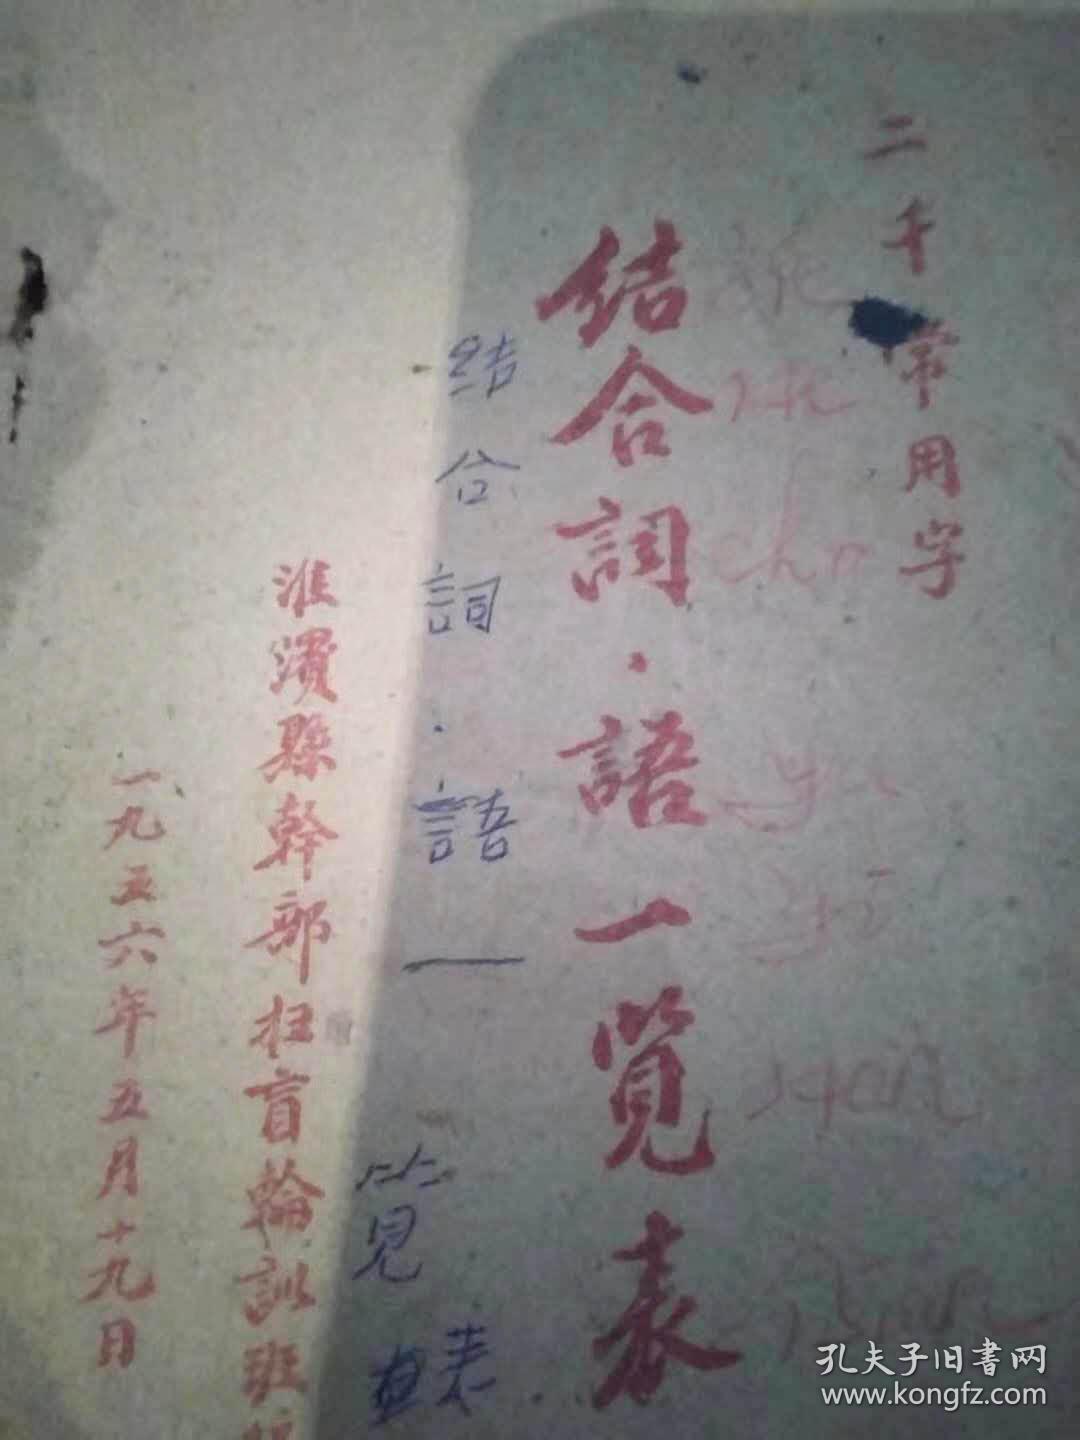 二千常用字
结合詞·語一覧表
结合詞·語一
览表
淮濱縣幹部扫盲輪訓班
一九五六年五月十九日
孔夫子旧書网
www.kongfz.com